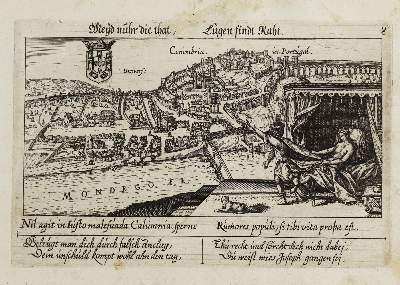 Meyd nuhr die that, Lügen findt Raht.
Conimbria. in Portugal.
MONDEGO. FL.
Nil agit in justo malesuada Calumnia: sperne
Rumores populi, si tibi vita proba est.
Betrügt man dich durch falsch
Dein unschuld kompt wohl ahn den tag,
Thu recht und förchte dich nicht dabej,
Du weist wies Joseph gangen sej.